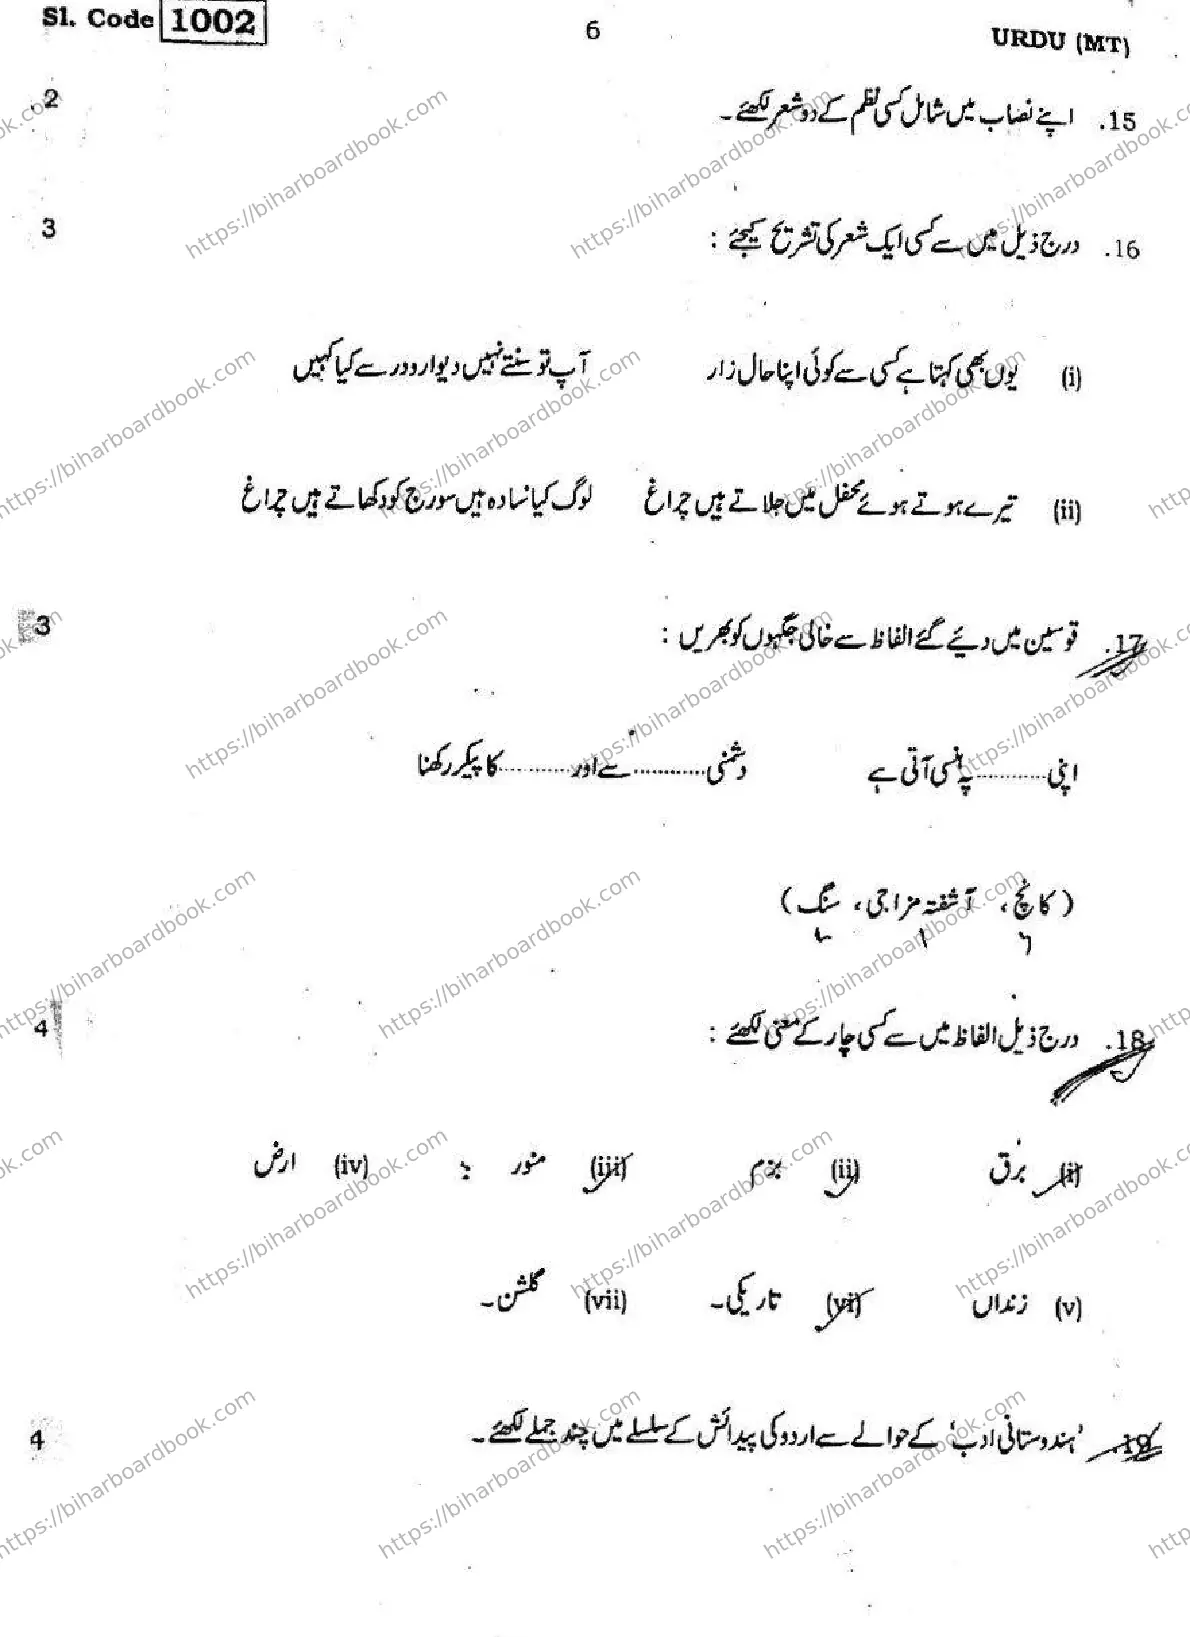 Sl. Code 1002 6 URDU (MT)
15. اپنے نصاب میں شامل کسی نظم کے دو شعر لکھئے۔ 2
16. درج ذیل میں سے کسی ایک شعر کی تشریح کیجئے : 3
(i) یوں بھی کہتا ہے کسی سے کوئی اپنا حال زار آپ تو سنتے نہیں دیوار و در سے کیا کہیں
(ii) تیرے ہوتے ہوئے محفل میں جلاتے ہیں چراغ لوگ کیا سادہ ہیں سورج کو دکھاتے ہیں چراغ
17. قوسین میں دئیے گئے الفاظ سے خالی جگہوں کو بھریں : 3
اپنی ........... پہ ہنسی آتی ہے دشمنی ........... سے اور ........... کا پیکر رکھنا
( کانچ ، آشفتہ مزاجی ، سنگ )
18. درج ذیل الفاظ میں سے کسی چار کے معنی لکھئے : 4
(i) برق (ii) بزم (iii) منور (iv) ارض
(v) زنداں (vi) تاریکی۔ (vii) گلشن۔
19. 'ہندوستانی ادب' کے حوالے سے اردو کی پیدائش کے سلسلے میں چند جملے لکھئے۔ 4
https://biharboardbook.com